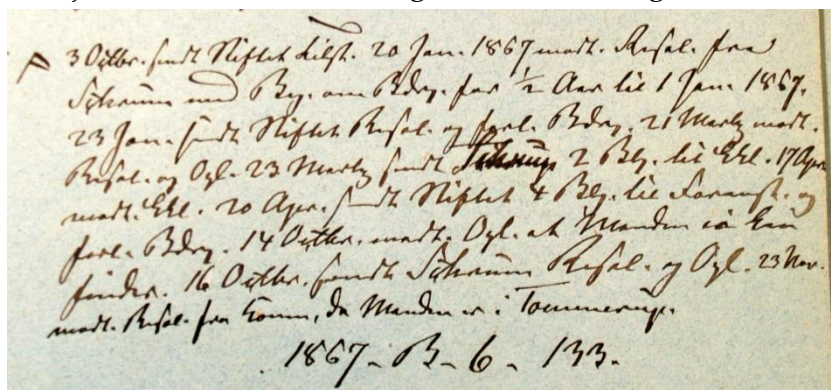 3 Octbr. sendt Stiftet Tilst. 20 Jan. 1867 modt. Resol. fra
med Bg. om Bdrg. for ½ Aar til 1 Jan. 1867.
23 Jan. sendt Stiftet Resol. og forl. Bdrg. 21 Marts modt.
Resol. og Opl. 23 Marts sendt 2 Blg. til Erkl. 17 Apr
modt. Erkl. 20 Apr. sendt Stiftet 4 Blg. til Foranst. og
forl. Bdrg. 14 Octbr. modt. Opl. at Manden ei kan
findes. 16 Octbr. sendt Resol. og Opl. 23 Nov.
modt. Resol. fra Komm, da Manden er i Tommerup.
1867 - B - 6 - 133.